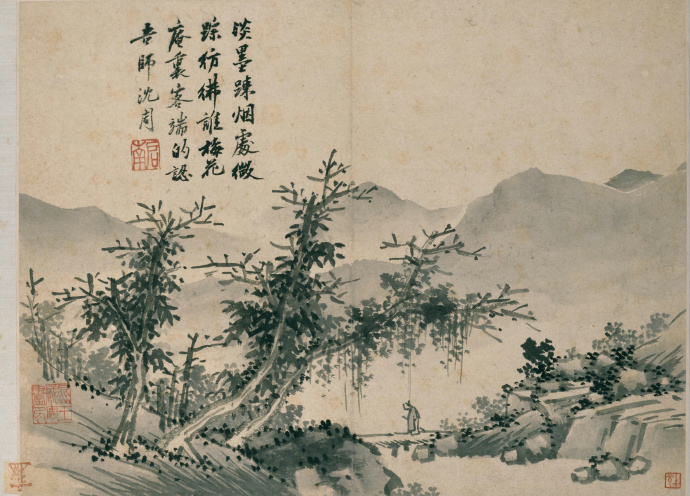 淡墨踈烟處微
踪仿彿誰梅花
庵裏客端的認
吾師沈周
啓南